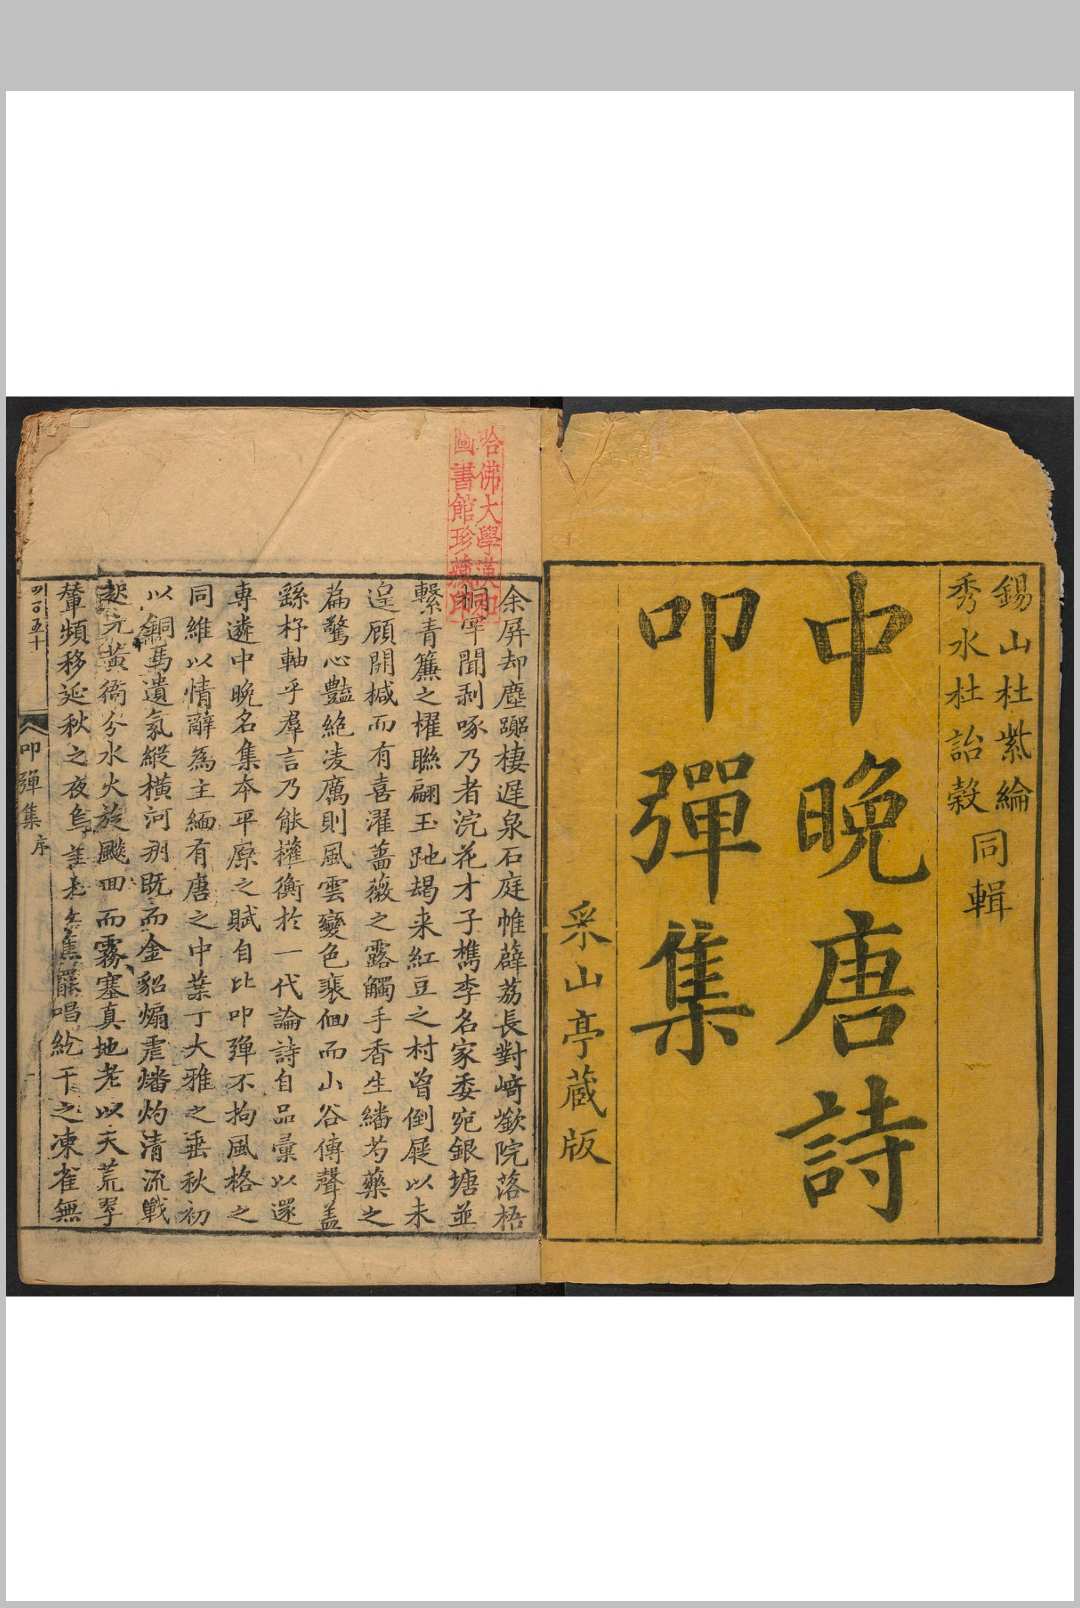 錫山杜紫綸
秀水杜詒穀
同輯
中晚唐詩
叩彈集
采山亭藏版
哈佛大學漢和
圖書館珍藏印
余屏却塵躅棲遲泉石庭帷薜荔長對崎嶔院落梧
桐罕聞剥啄乃者浣花才子檇李名家委宛銀塘並
繫青簾之櫂聯翩玉跎朅来紅豆之村曾倒屣以未
遑顧開椷而有喜濯薔薇之露觸手香生繙芍藥之
篇驚心豔絶凌厲則風雲變色裴佪而山谷傳聲盖
繇杼軸乎羣言乃能權衡於一代論詩自品彙以還
專遴中晚名集夲平原之賦自比叩彈不拘風格之
同維以情辭爲主緬有唐之中葉丁大雅之垂秋初
以銅馬遺氛縱横河朔既而金貂煽虐燔灼清流戰
元黄 分水火 颷回而霧塞真地老以天荒翠
輦頻移延秋之夜烏 罷唱紇干之凍雀無
叩彈集
序